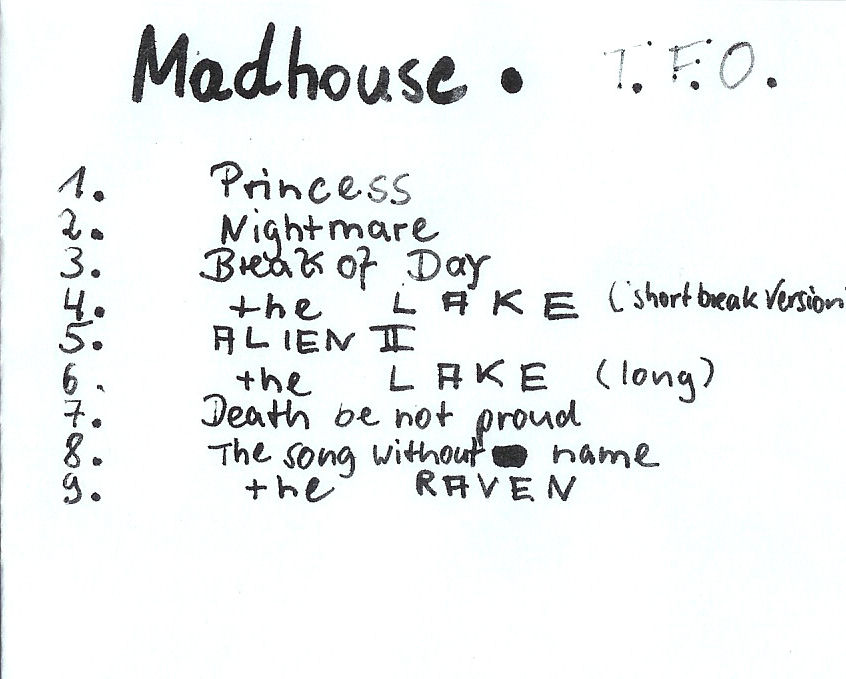 Madhouse . T.F.O.
1. Princess
2. Nightmare
3. Break of Day
4. the LAKE (short break Version
5. ALIEN II
6. the LAKE (long)
7. Death be not proud
8. The song without name
9. the RAVEN